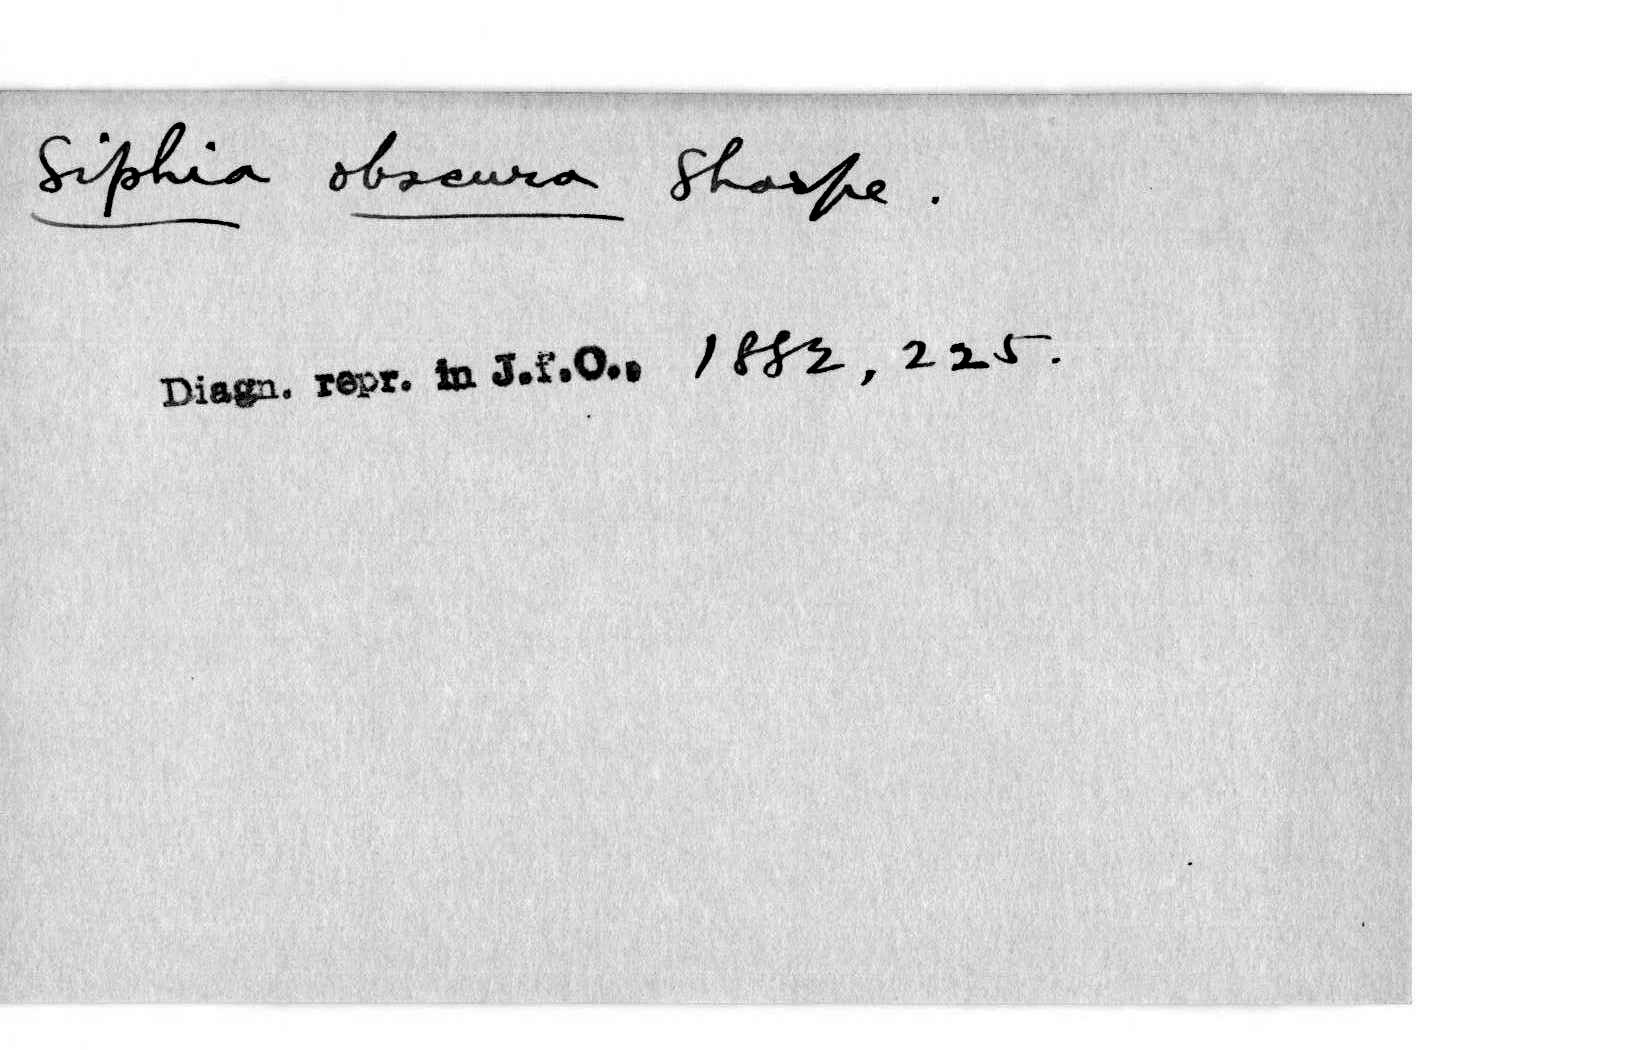 Siphia obscura Sharpe.
Diagn. repr. in J.f.O., 1882, 225.